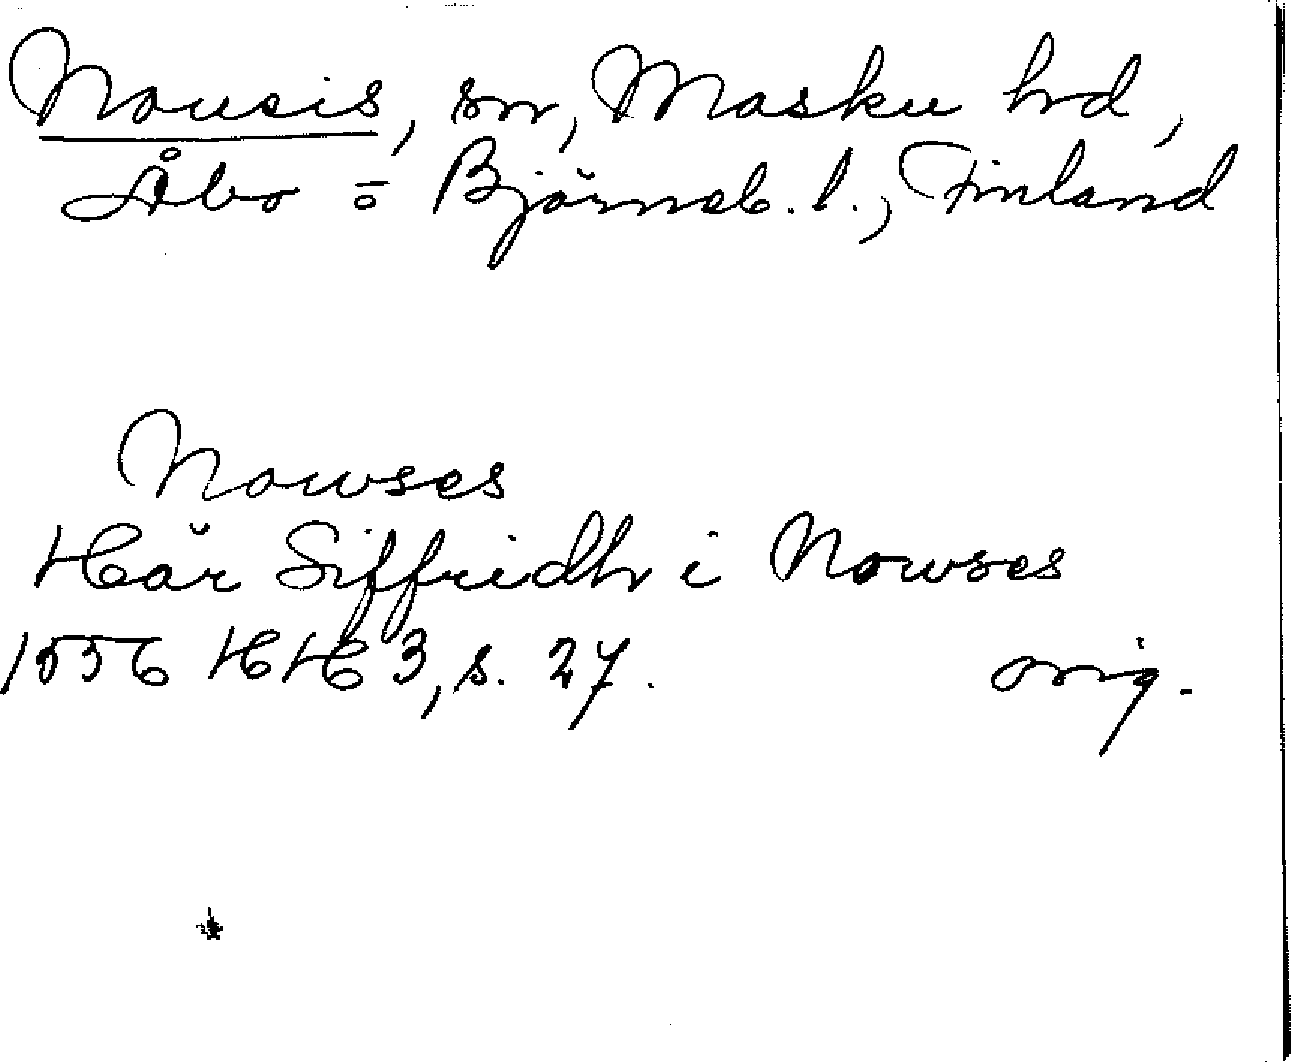 Nousis, sn, Masku hd,
Åbo = Björneb. l., Finland
Nowses
Här Siffridh i Nowses
1556 HH 3, s. 27. orig.